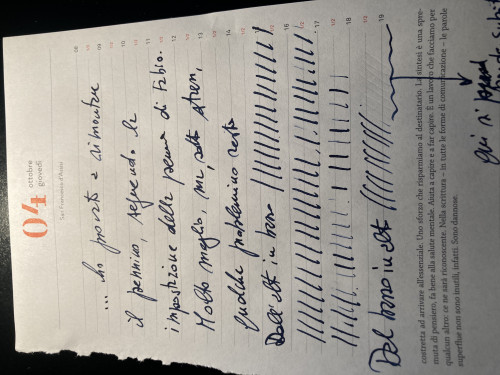 04
ottobre
giovedì
San Francesco d'Assisi
08
09
10
11
12
13
14
15
16
17
18
19
... ho provato a rimontare
il pennino, seguendo le
impostazione della penna di Fabio.
Molto meglio, ma, sotto stress,
qualche problemino resta
Dall'alto in basso
Dal basso in alto
qui si
costretta ad arrivare all'essenziale. Uno sforzo che risparmiamo al destinatario. La sintesi è una spre-
muta di pensiero, fa bene alla salute mentale. Aiuta a capire e a far capire. È un lavoro che facciamo per
qualcun altro: ce ne sarà riconoscente. Nella scrittura – in tutte le forme di comunicazione – le parole
superflue non sono inutili, infatti. Sono dannose.